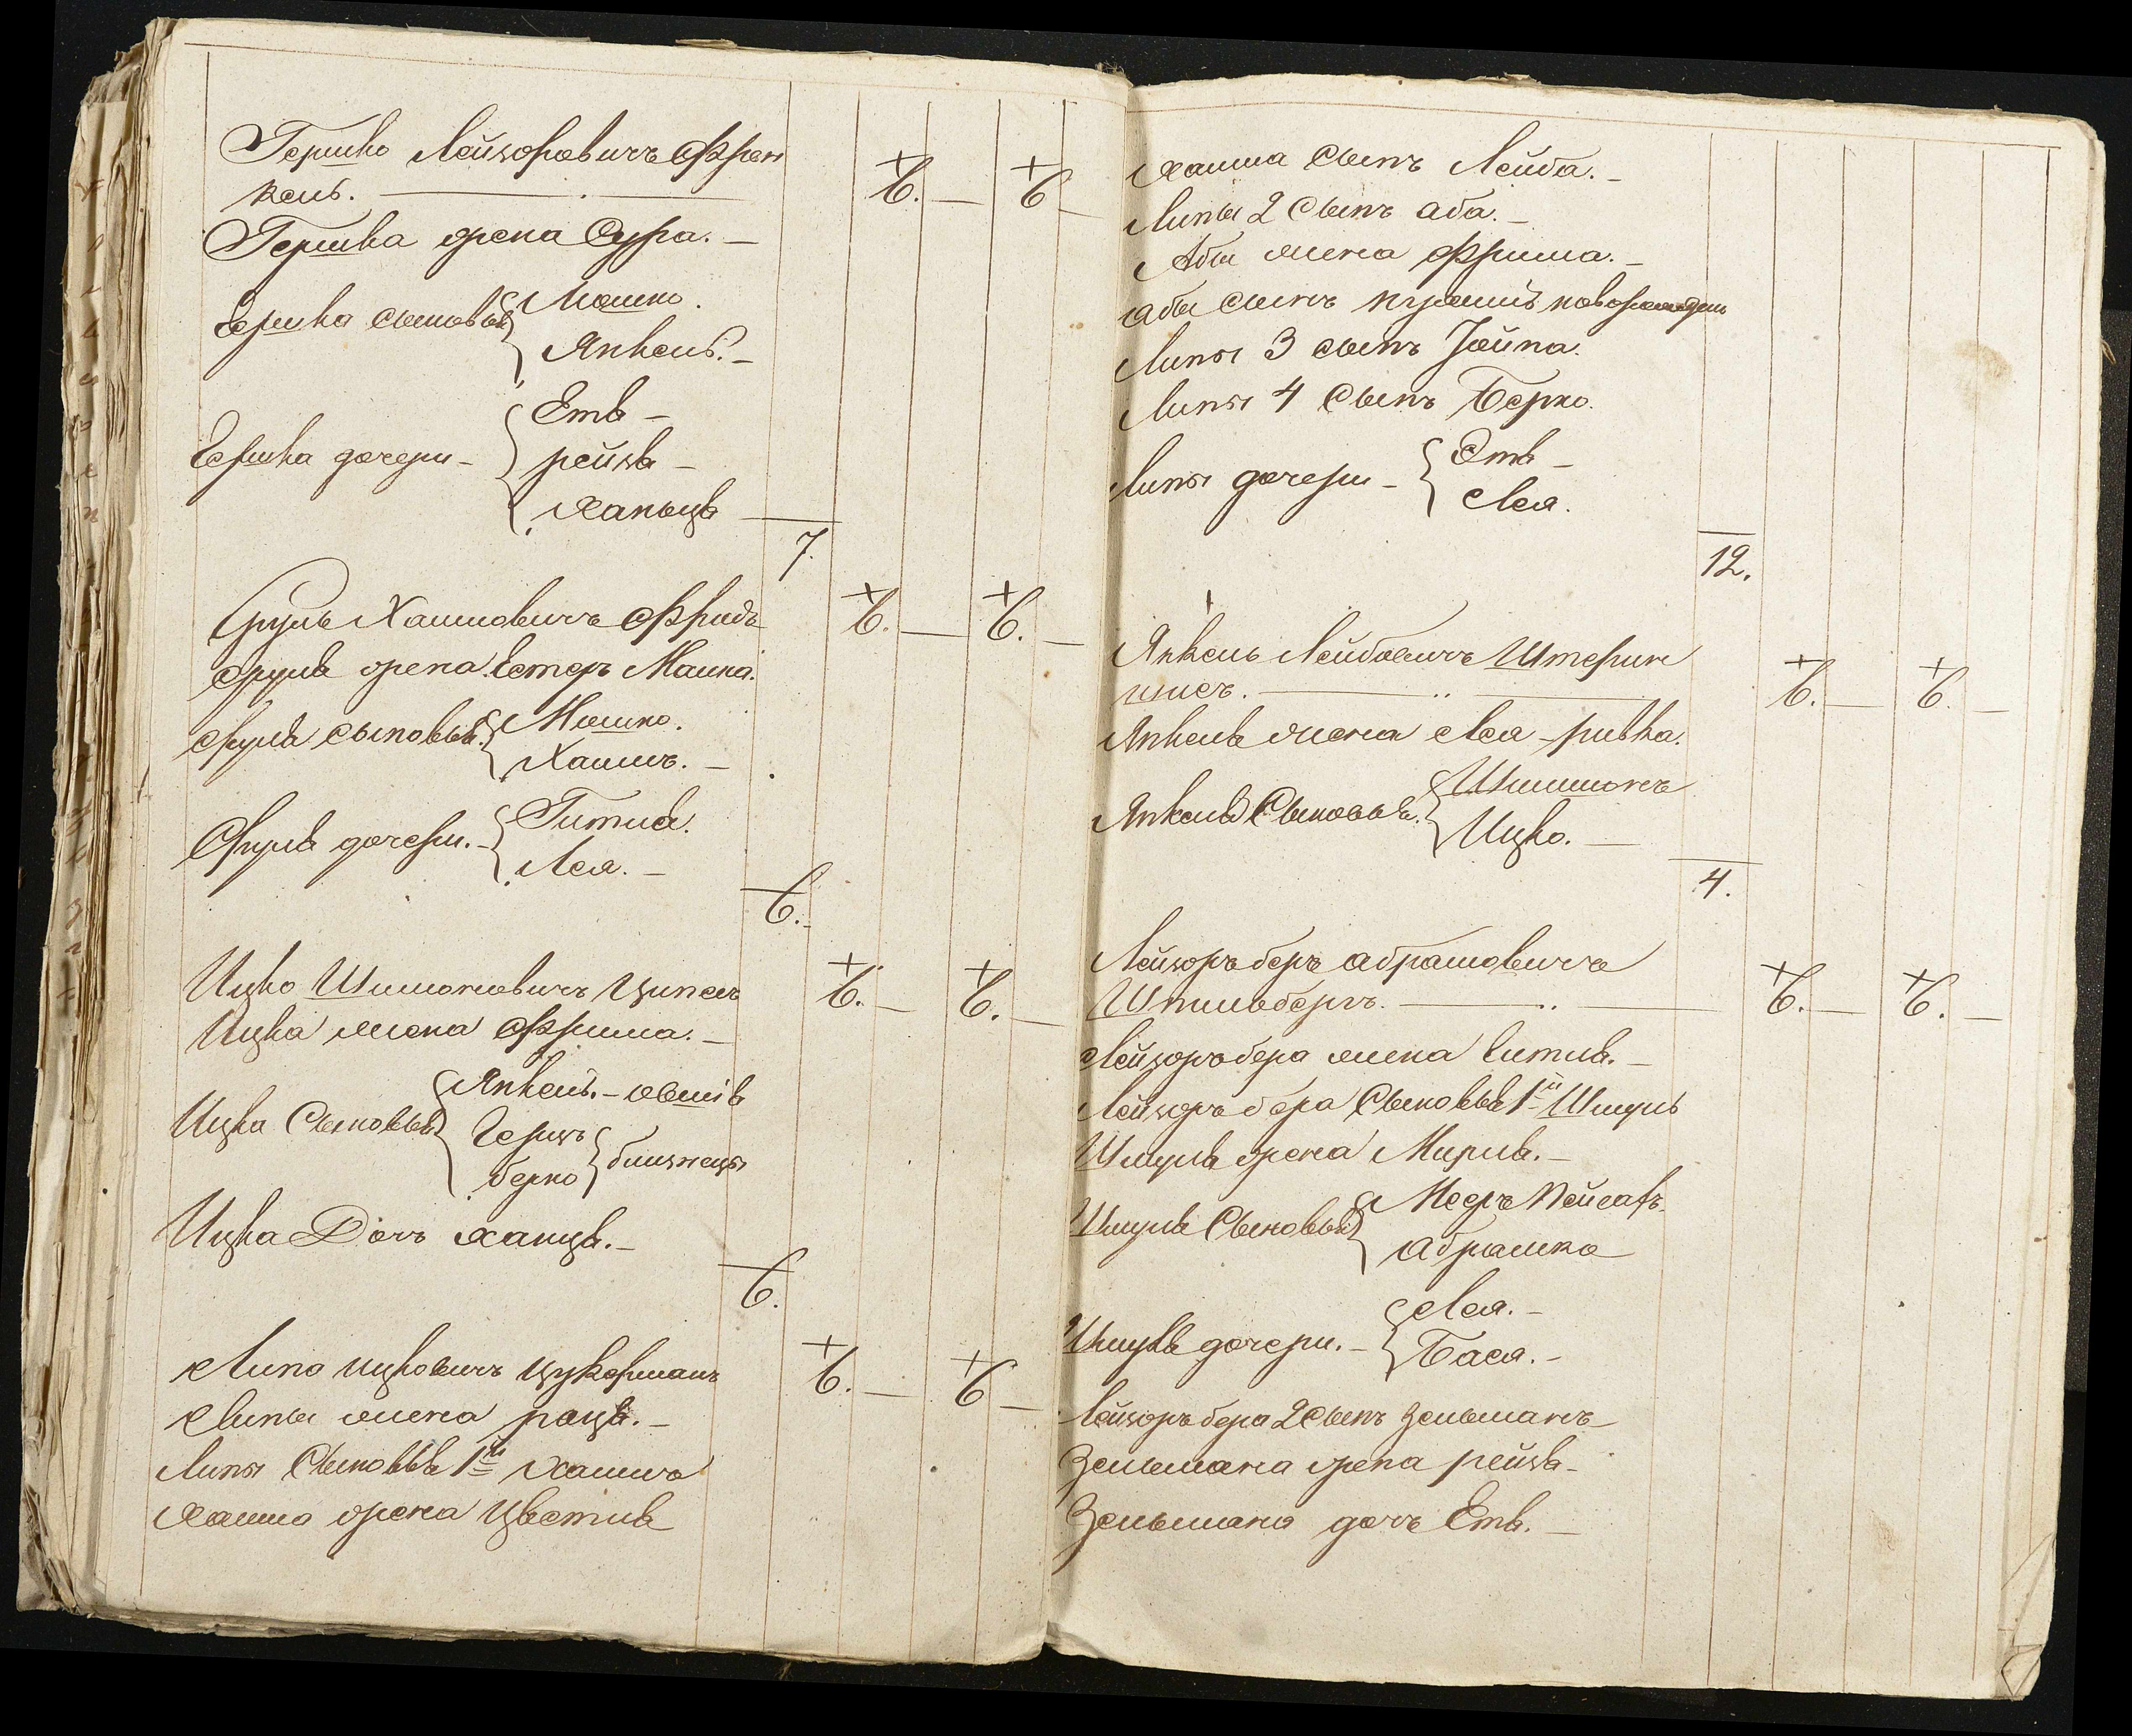 Гершко Лейзоровичъ Френ
кель.
Гершка жена Сура.
Гершка сыновья { Мошко.
Янкель.
Гершка дочери { Етя
рейзя
Ханьця
7.
Сруль Хаимовичъ Фридъ
Сруля жена Естеръ Маика.
Сруля сыновья { Мошко.
Хаимъ.
Сруля дочери. { Гитля.
Лея.
6.
Ицко Шимоновичъ Ципелъ
Ицка жена Фрима.
Ицка Сыновья { Янкель.
Гершъ
берко } близнецы
Ицка Дочь ханця.
6.
Липа ицковичъ цукерманъ
Липы жена раця.
Липы Сыновья 1й хаимъ
хаима жена Цветля
хаима Сынъ Лейба.
Липы 2 Сынъ аба.
Абы жена Фрима.
абы сынъ новорожден
Липы 3 сынъ Іойна.
Липы 4 Сынъ Берко.
Липы дочери { Этя
Лея.
12.
Янкель Лейбовичъ Штерин
шисъ.
Янкеля жена Лея-ривка.
Янкеля Сыновья. { Шимонъ
Ицко.
4.
Лейзоръ беръ абрамовичъ
Шпильбергъ.
Лейзоръ бера жена Гитля.
Лейзоръ бера Сыновья 1й Шмуль
Шмуля жена Мирля.
Шмуля Сыновья { Мееръ Пейсахъ
абрамко
Шмуля дочери. { Лея.
Бася.
Лейзоръ бера 2 Сынъ Зельманъ
Зельмана жена рейзя
Зельмана дочь Етя.
6. 6
6. 6.
6. 6.
6. 6
6. 6.
6. 6.